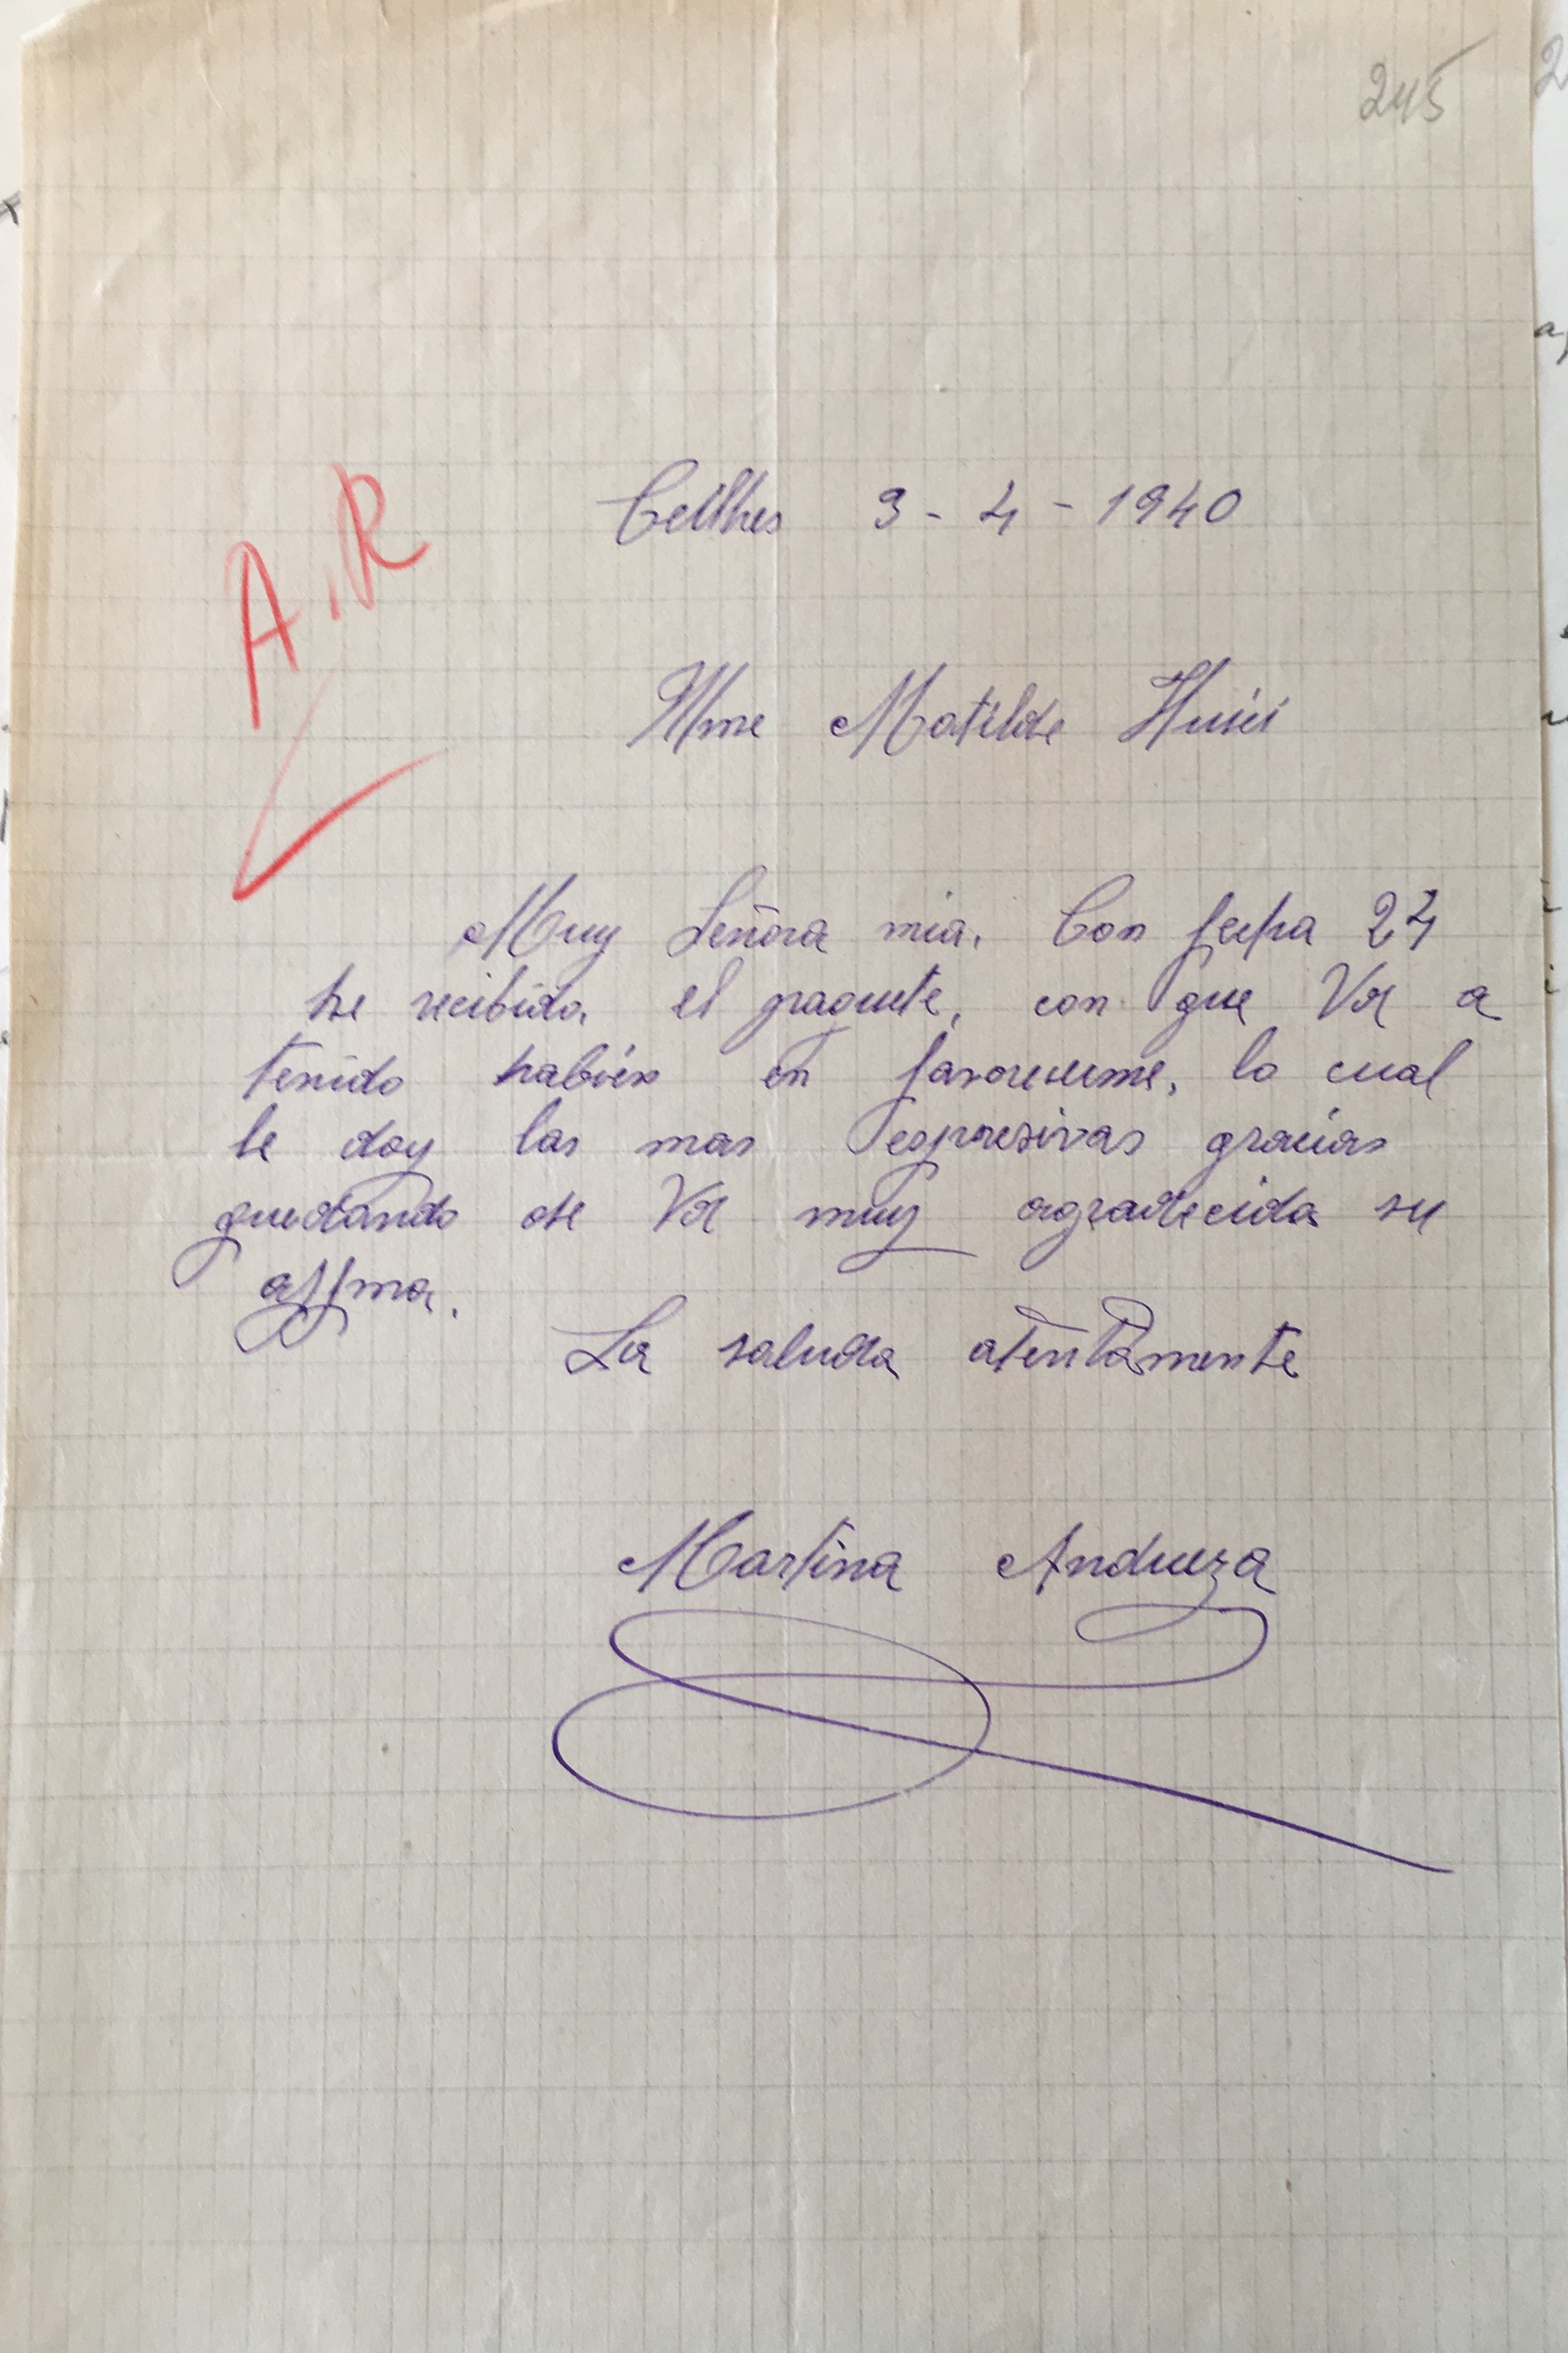 245
A.R
Ceilhes 3-4-1940
Mme Matilde Huici
Muy Señora mia. Con fecha 24
he recibido, el paquete, con que Vd a
tenido habien en favorecerme, lo cual
le doy las mas espresivas gracias
quedando de Vd muy agradecida su
affma.
La saluda atentamente
Martina Andueza